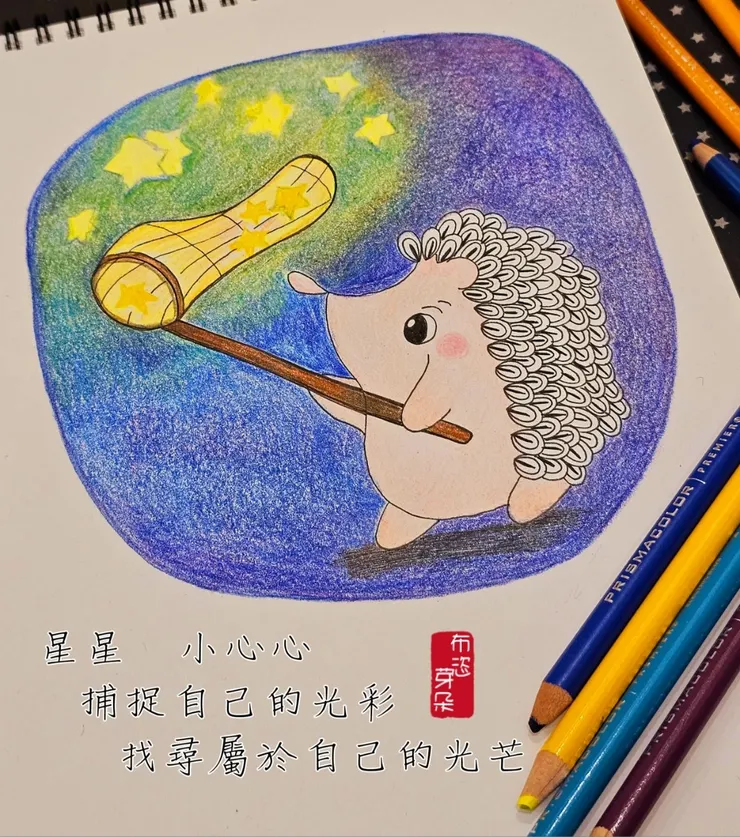 星星　小心心
捕捉自己的光彩
找尋屬於自己的光芒
布恣
芽朵
PRISMACOLOR | PREMIER
PRISMACOLOR